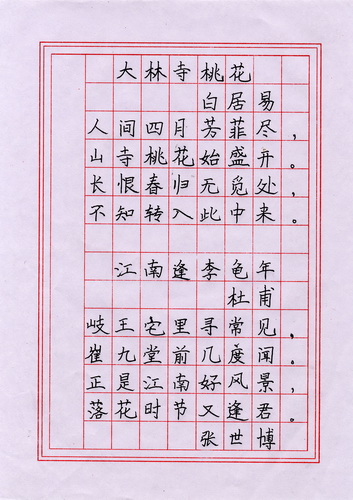 大林寺桃花
白居易
人间四月芳菲尽，
山寺桃花始盛开。
长恨春归无觅处，
不知转入此中来。
江南逢李龟年
杜甫
岐王宅里寻常见，
崔九堂前几度闻。
正是江南好风景，
落花时节又逢君。
张世博